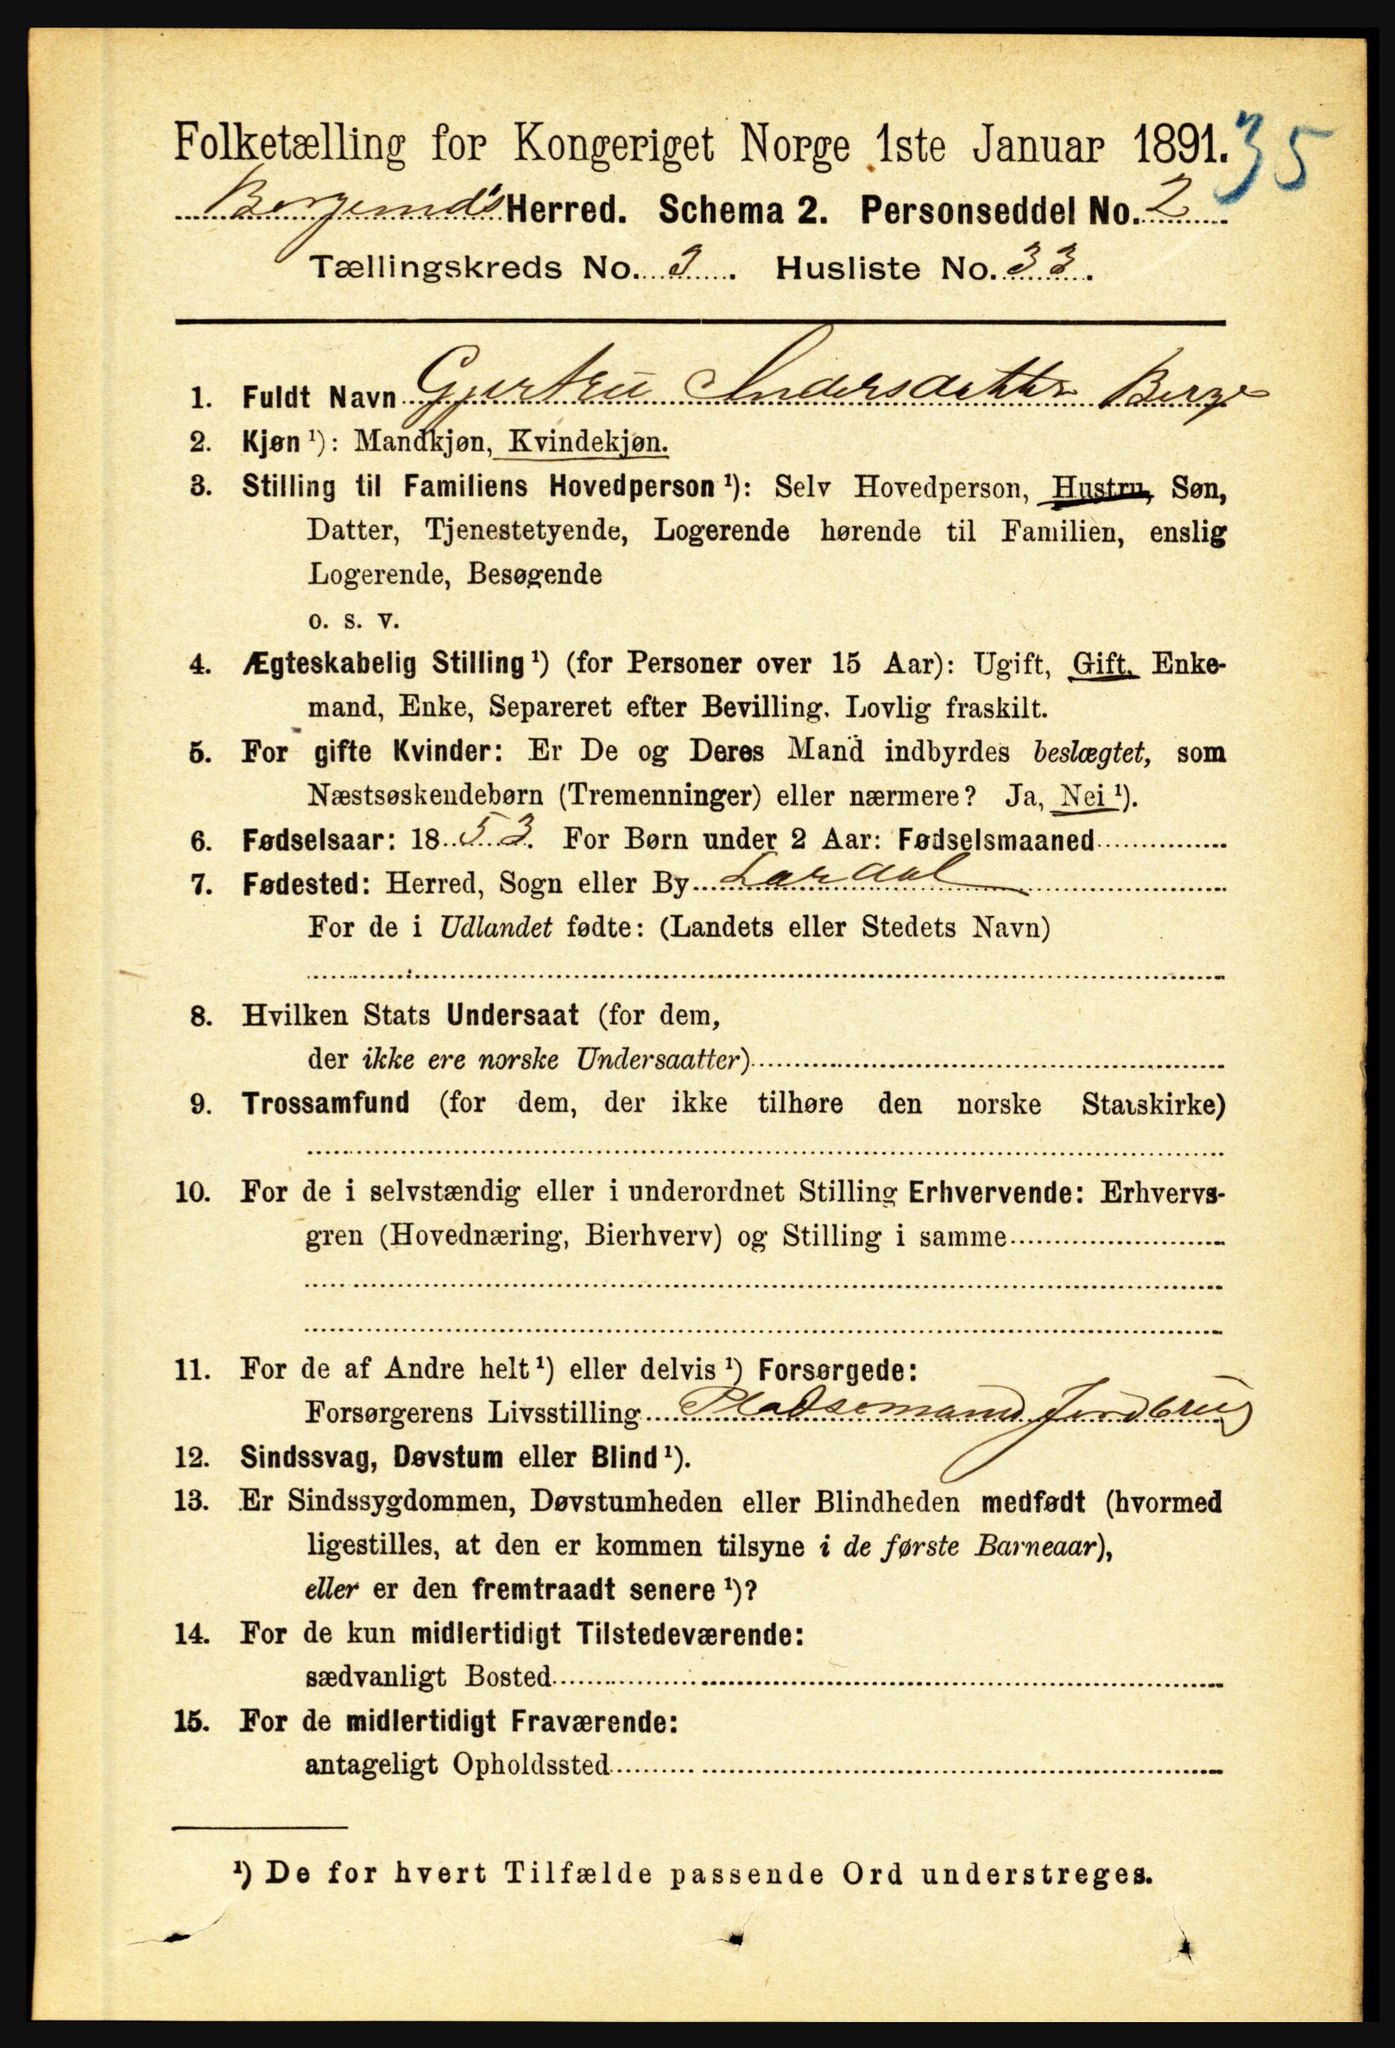 Folketælling for Kongeriget Norge 1ste Januar 1891. 35
Borgund's Herred. Schema 2. Personseddel No. 2
Tællingskreds No. 3. Husliste No. 33.
1. Fuldt Navn Gjertru Andersdatter Berge
2. Kjøn ¹): Mandkjøn, Kvindekjøn.
3. Stilling til Familiens Hovedperson ¹): Selv Hovedperson, Hustru, Søn,
Datter, Tjenestetyende, Logerende hørende til Familien, enslig
Logerende, Besøgende
o. s. v.
4. Ægteskabelig Stilling ¹) (for Personer over 15 Aar): Ugift, Gift, Enke-
mand, Enke, Separeret efter Bevilling. Lovlig fraskilt.
5. For gifte Kvinder: Er De og Deres Mand indbyrdes beslægtet, som
Næstsøskendebørn (Tremenninger) eller nærmere? Ja, Nei ¹).
6. Fødselsaar: 1853. For Børn under 2 Aar: Fødselsmaaned
7. Fødested: Herred, Sogn eller By Lærdal
For de i Udlandet fødte: (Landets eller Stedets Navn)
8. Hvilken Stats Undersaat (for dem,
der ikke ere norske Undersaatter)
9. Trossamfund (for dem, der ikke tilhøre den norske Statskirke)
10. For de i selvstændig eller i underordnet Stilling Erhvervende: Erhvervs-
gren (Hovednæring, Bierhverv) og Stilling i samme
11. For de af Andre helt ¹) eller delvis ¹) Forsørgede:
Forsørgerens Livsstilling Pladsemand Jordbrug
12. Sindssvag, Døvstum eller Blind ¹).
13. Er Sindssygdommen, Døvstumheden eller Blindheden medfødt (hvormed
ligestilles, at den er kommen tilsyne i de første Barneaar),
eller er den fremtraadt senere ¹)?
14. For de kun midlertidigt Tilstedeværende:
sædvanligt Bosted
15. For de midlertidigt Fraværende:
antageligt Opholdssted
¹) De for hvert Tilfælde passende Ord understreges.